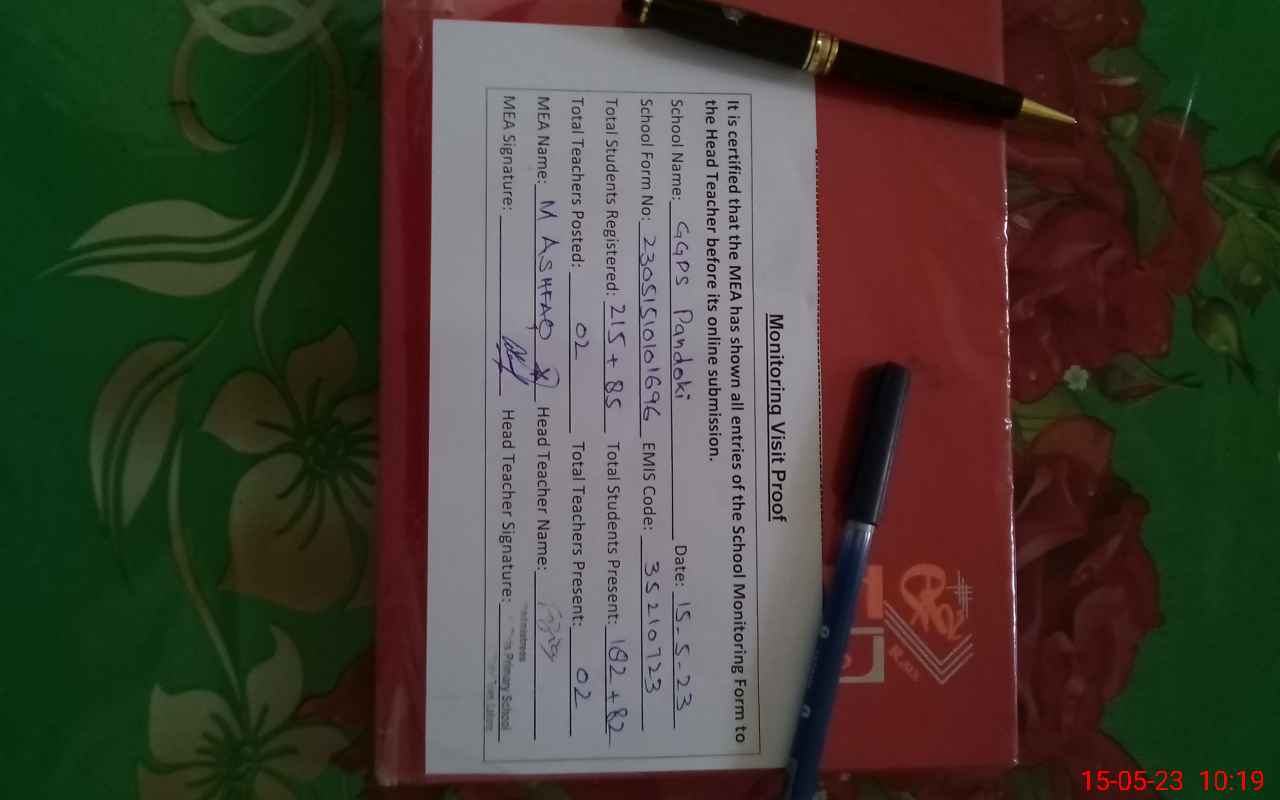 Monitoring Visit Proof
It is certified that the MEA has shown all entries of the School Monitoring Form to
the Head Teacher before its online submission.
School Name: GGPS Pandoki Date: 15-5-23
School Form No: 23051510101696 EMIS Code: 35210723
Total Students Registered: 215 + 85 Total Students Present: 182 + 82
Total Teachers Posted: 02 Total Teachers Present: 02
MEA Name: M ASHFAQ Head Teacher Name:
MEA Signature: Head Teacher Signature:
Primary School
15-05-23 10:19